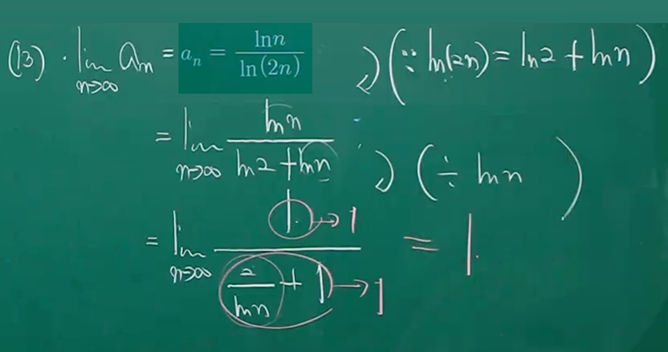 (13) · lim n→∞ an = an = ln n / ln(2n) (∵ ln(2n) = ln2 + ln n)
= lim n→∞ ln n / ln2 + ln n (÷ ln n)
= lim n→∞ 1 → 1 / 2/ln n + 1 → 1 = 1.